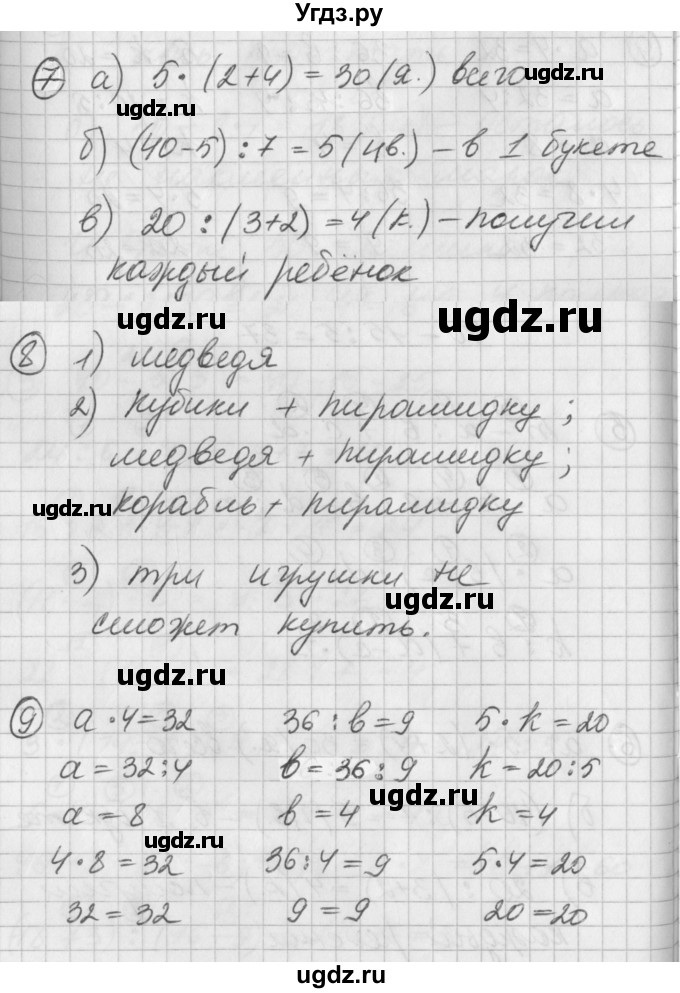 Угдз.ру
⑦ а) 5 · (2+4) = 30 (я.) всего
ugdz.ru
б) (40-5) : 7 = 5 (цв.) – в 1 букете
в) 20 : (3+2) = 4 (к.) – получил
каждый ребёнок
ugdz.ru ugdz.ru
⑧ 1) медведя
2) кубики + пирамидку ;
медведя + пирамидку ;
ugdz.ru корабль + пирамидку
3) три игрушки не
ugdz.ru
сможет купить.
ugdz.ru
⑨ a · 4 = 32 36 : в = 9 5 · k = 20
a = 32 : 4 в = 36 : 9 k = 20 : 5
ugdz.ru
a = 8 в = 4 k = 4
ugdz.ru
4 · 8 = 32 36 : 4 = 9 5 · 4 = 20
32 = 32 9 = 9 20 = 20
ugdz.ru